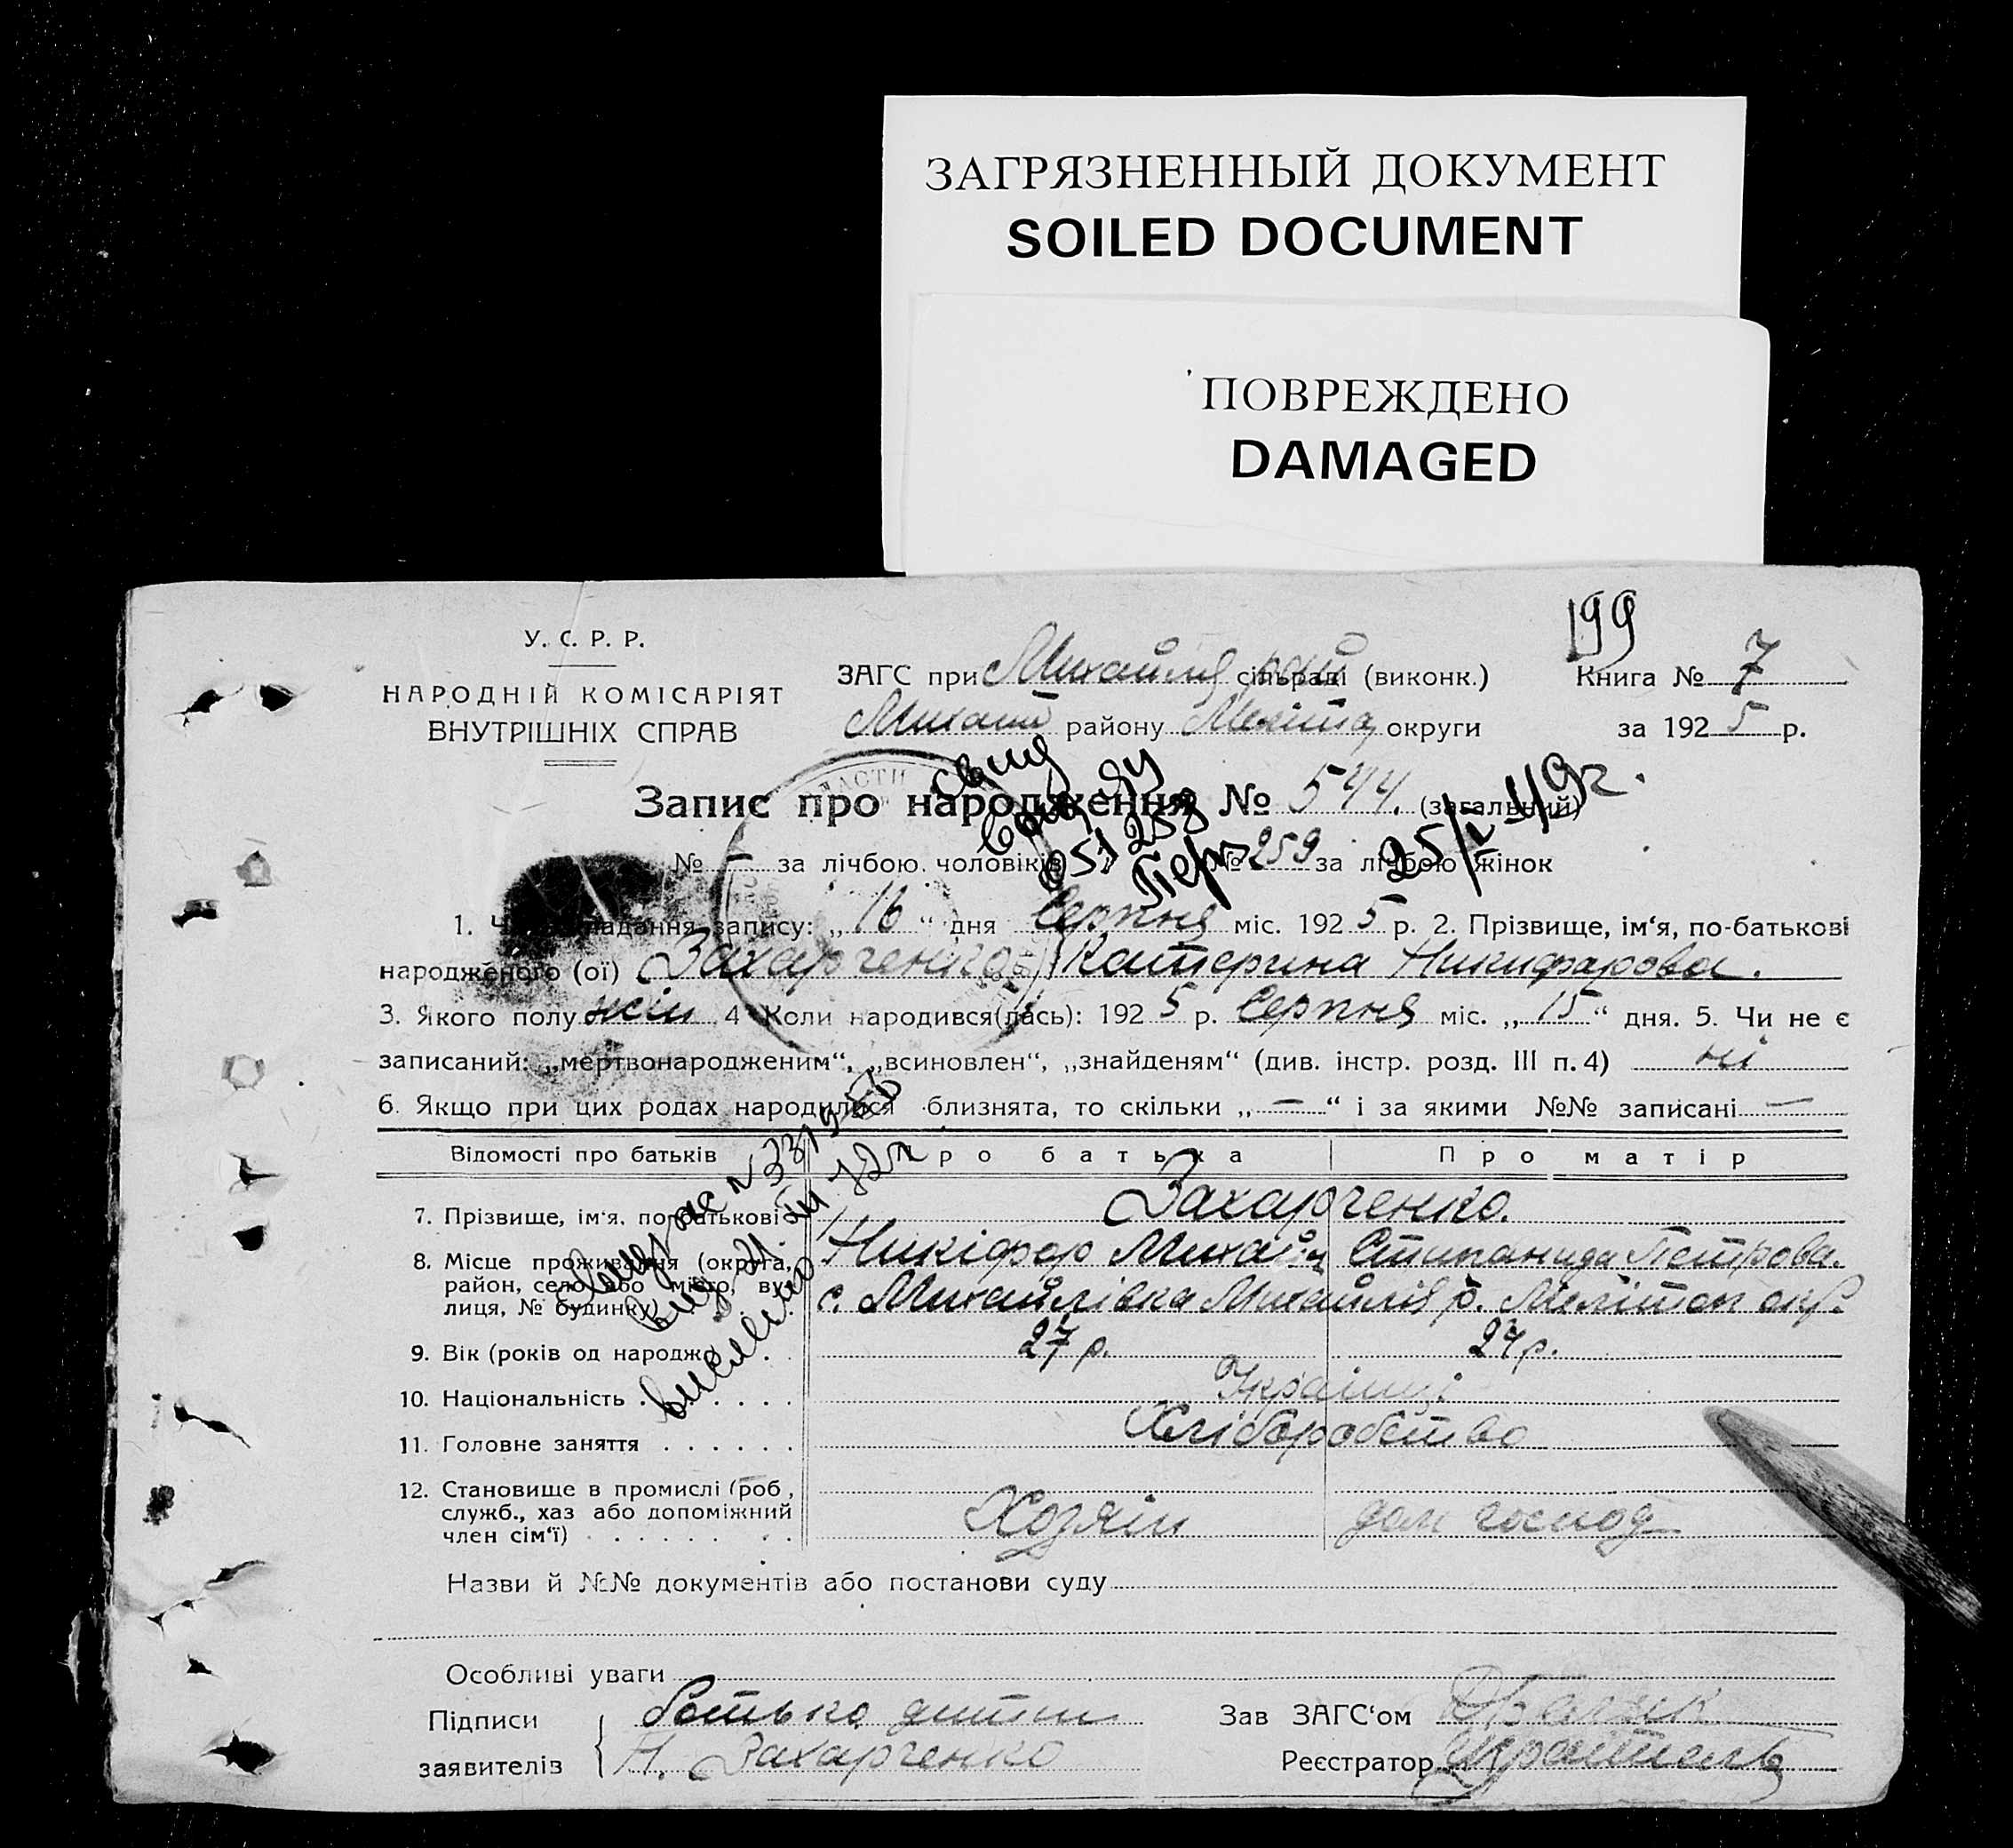 ЗАГРЯЗНЕННЫЙ ДОКУМЕНТ
SOILED DOCUMENT
ПОВРЕЖДЕНО
DAMAGED
199
У. С. Р. Р.
НАРОДНІЙ КОМІСАРІЯТ
ВНУТРІШНІХ СПРАВ
ЗАГС при сільраді (виконк.)
району Меліто округи
Книга № 7
за 1925 р.
Запис про народження № 544. (загальний)
№ — за лічбою чоловіків № 259 за лічбою жінок
25/V-49г.
051258
1. складання запису: „16“ дня Серпня міс. 1925 р. 2. Прізвище, ім‘я, по-батькові
народженого (ої) Захарченко Катерина Никифорова.
3. Якого полу жін 4 Коли народився(лась): 1925 р. Серпня міс. „15“ дня. 5. Чи не є
записаний: „мертвонародженим“, „всиновлен“, „знайденям“ (див. інстр. розд. III п. 4) ні
6. Якщо при цих родах народилися близнята, то скільки „—“ і за якими №№ записані —
Відомості про батьків
Про батька
Про матір
7. Прізвище, ім‘я, по-батькові
Захарченко.
Никіфор Степанида Петрова.
8. Місце проживання (округа,
район, село або місто, ву-
лиця, № будинку)
с. Михайлівка Михайлів р. Мелітоп окр.
9. Вік (років од народж.)
27 р.
24 р.
10. Національність
Українці
11. Головне заняття
Хліборобство
12. Становище в промислі (роб.,
служб., хаз або допоміжний
член сім‘ї)
Хозяін
дом господ
Назви й №№ документів або постанови суду
Особливі уваги
Підписи
заявителів
батько дитини
Н. Захарченко
Зав ЗАГС‘ом
Реєстратор